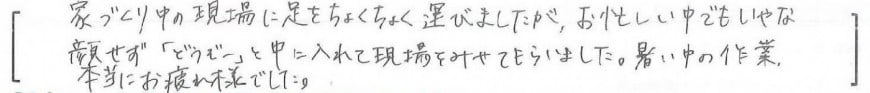 家づくり中の現場に足をちょくちょく運びましたが、お忙しい中でもいやな
顔せず「どうぞー」と中に入れて現場をみせてもらいました。暑い中の作業、
本当にお疲れ様でした。